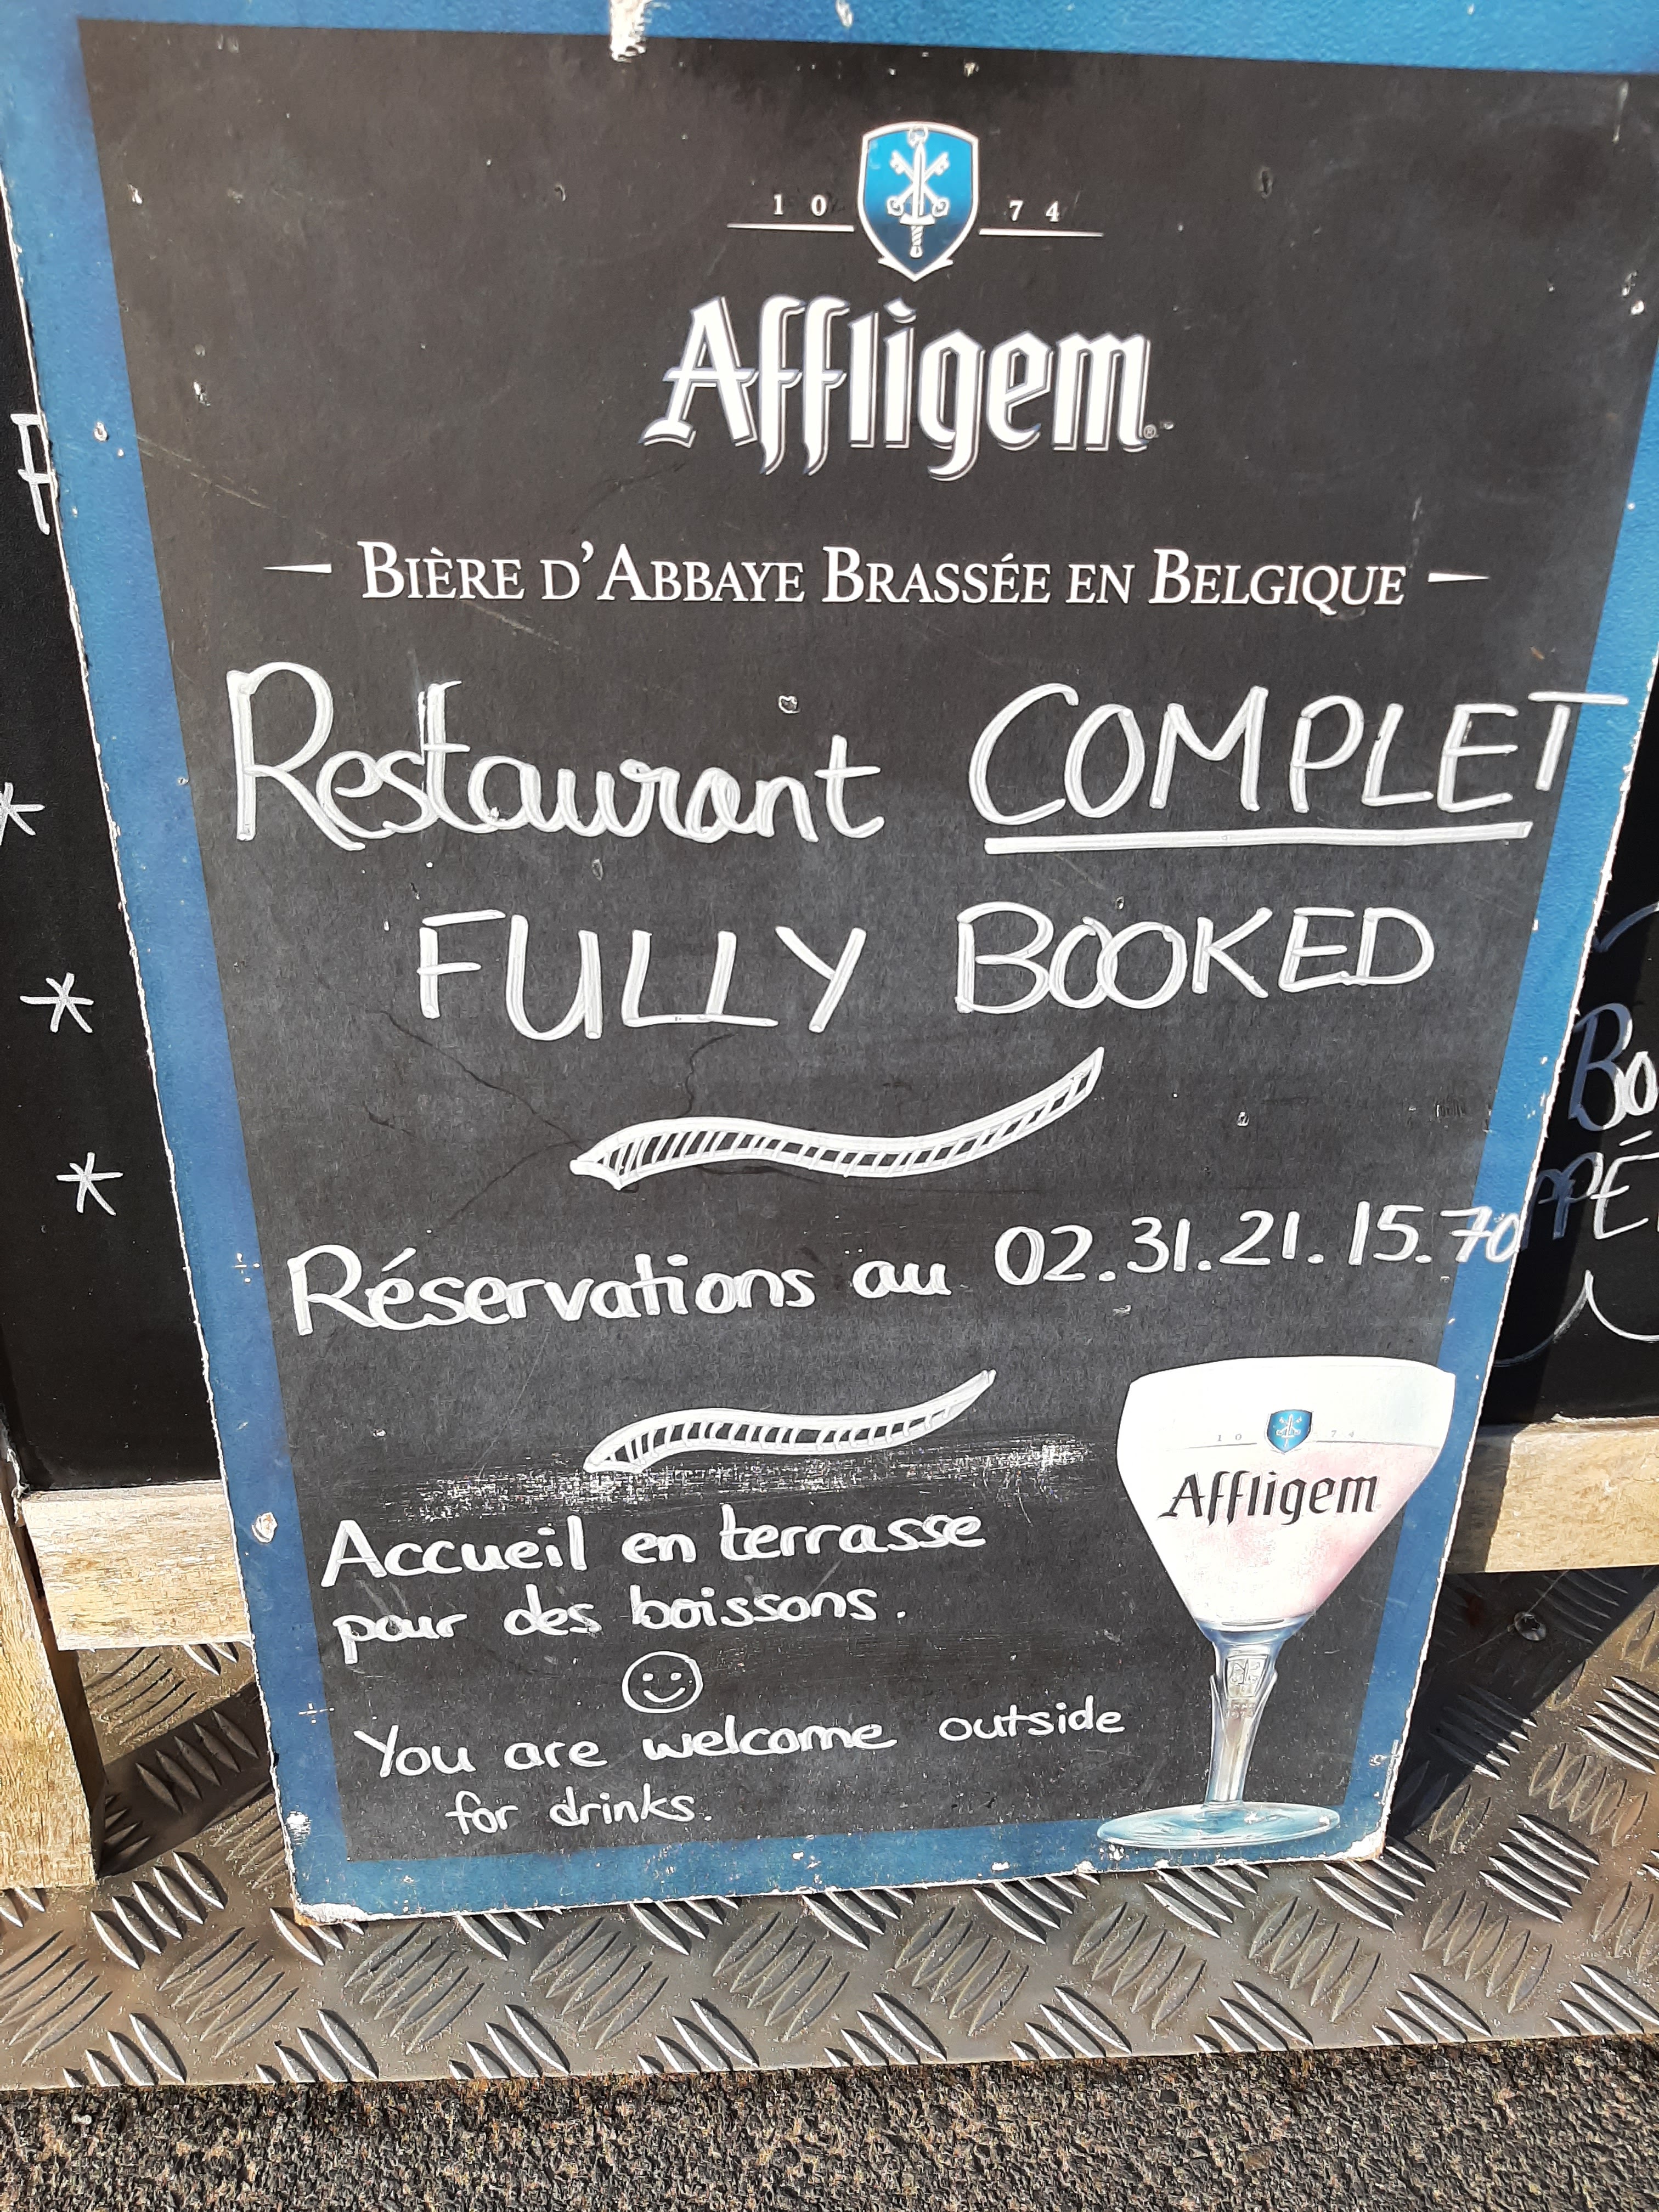 10 74
Affligem
BIÈRE D'ABBAYE BRASSÉE EN BELGIQUE
Restaurant COMPLET
FULLY BOOKED
Réservations au 02.31.21.15.70
10 74
Affligem
Accueil en terrasse
pour des boissons.
You are welcome outside
for drinks.